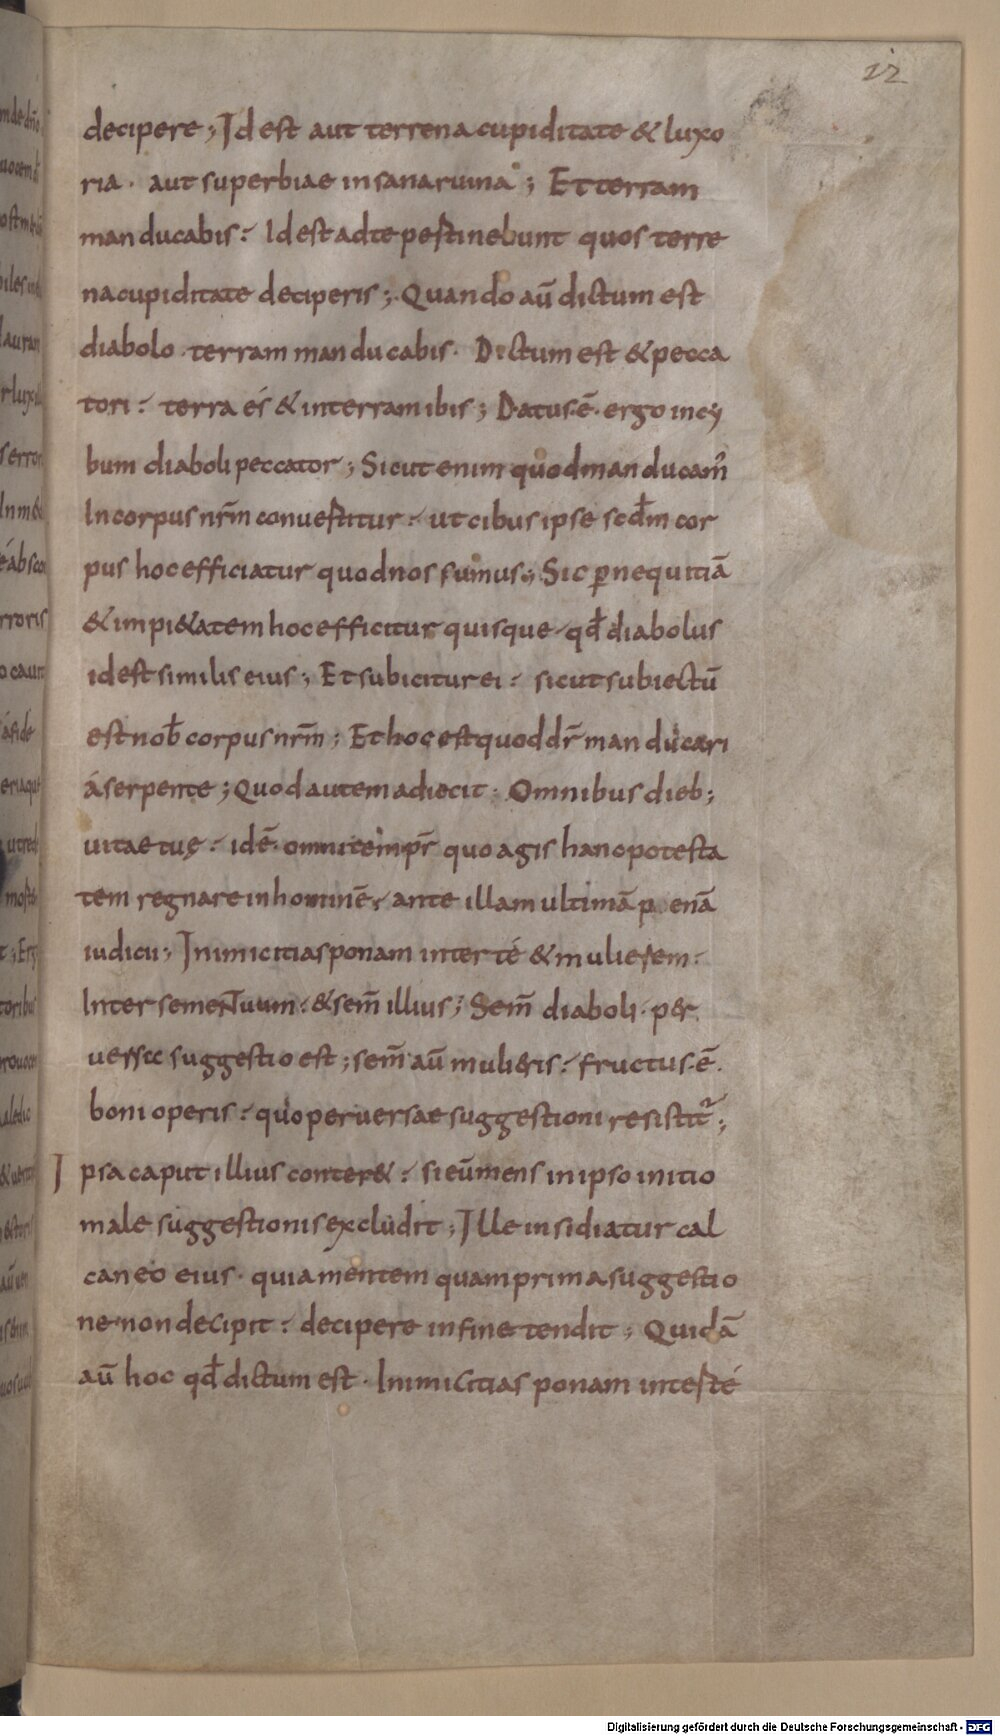 12
decipere; Id est aut terrena cupiditate & luxo
ria. aut superbiae insana ruina; Et terram
manducabis: Id est ad te pestinebunt quos terre
na cupiditate deciperis; Quando aū dictum est
diabolo. terram manducabis. Dictum est & pecca
tori: terra és & in terram ibis; Datus.ē. ergo in cy
bum diaboli peccator; Sicut enim quod manducam̄
In corpus nr̄m convestitur: ut cibus ipse scd̄m cor
pus hoc efficiatur quod nos sumus; Sic ꝑ nequitiā
& impi&atem hoc efficitur quisque qd̄ diabolus
id est similis eius; Et subicitur ei: sicut subiectū
est nob̄ corpus nr̄m; Et hoc est quod dr̄ manducari
á serpente; Quod autem adiecit. Omnibus dieb;
vitae tuę: idē. omni tempr̄ quo agis hanc potesta
tem regnare in hominē, ante illam ultimā p enā
iudicii; Inimicitias ponam inter té & mulierem:
Inter semen tuum: & sem̄ illius; Sem̄ diaboli. per
versa suggestio est; sem̄ aū muli&ris: fructus.ē.
boni operis: quo perversae suggestioni resistit᷑;
Ipsa caput illius conter&: si eūmens in ipso initio
male suggestionis excludit; Ille insidiatur cal
caneo eius. quia mentem quam prima suggestio
ne non decipit: decipere in fine tendit; Quidā
aū hoc qd̄ dictum est. Inimicitias ponam inter té
Digitalisierung gefördert durch die Deutsche Forschungsgemeinschaft - DFG